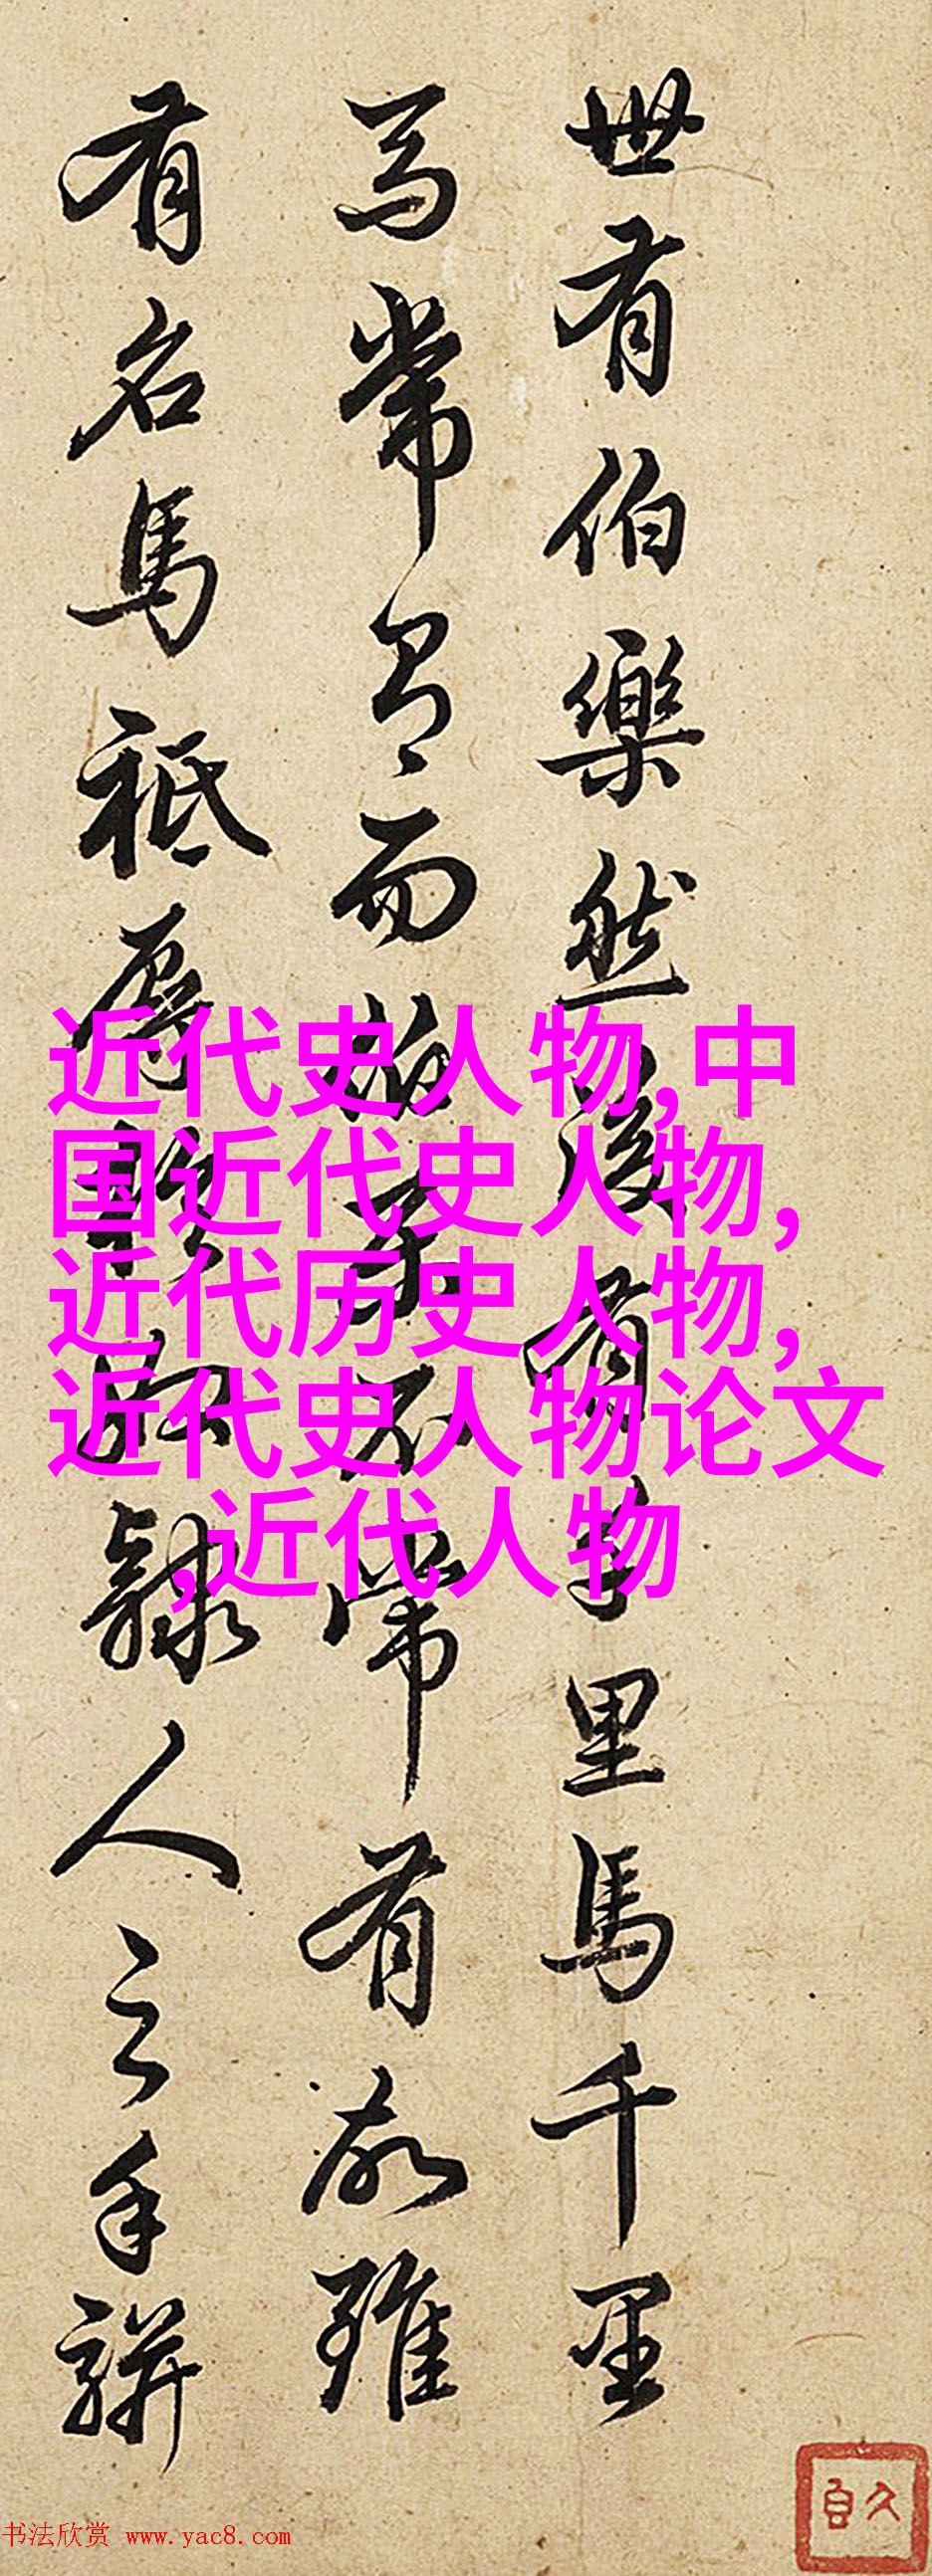 世有伯樂然後有千里馬千里
馬常有而伯樂不常有故雖
有名馬祗辱於奴隸人之手駢
近代史人物,中
国近代史人物,
近代历史人物,
近代史人物论文
,近代人物
书法欣赏 www.yac8.com